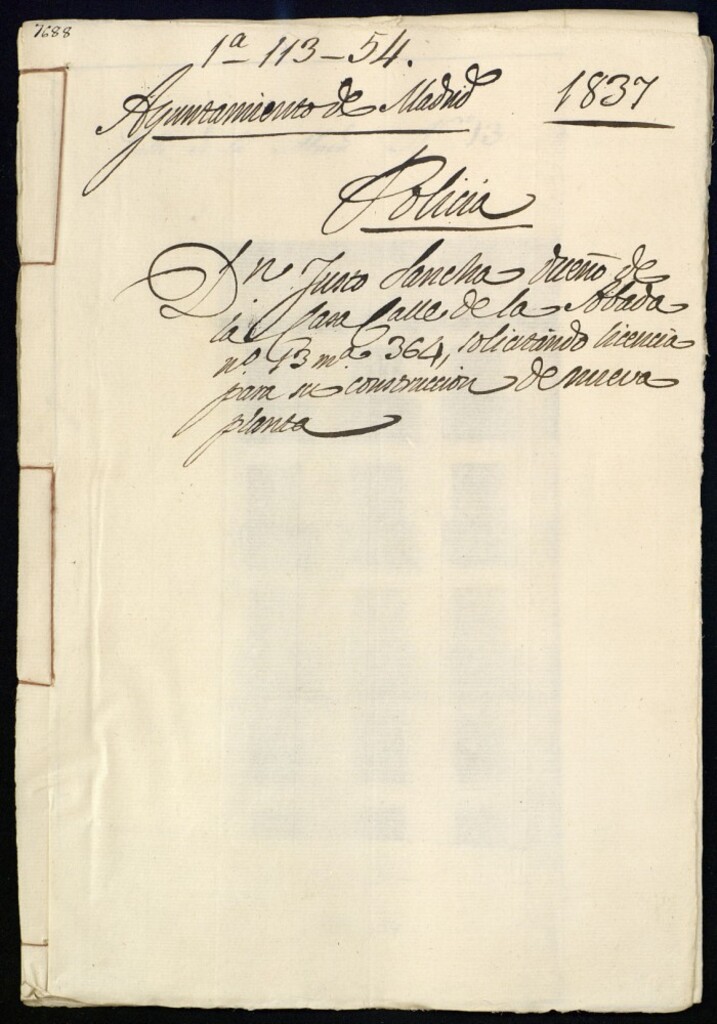 7688
1ª 113-54.
Ayuntamiento de Madrid 1837
Policia
Dn Justo Sancha dueño de
la Casa Calle de la Abada
nº 13 mª 364, solicitando licencia
para su construccion de nueva
planta